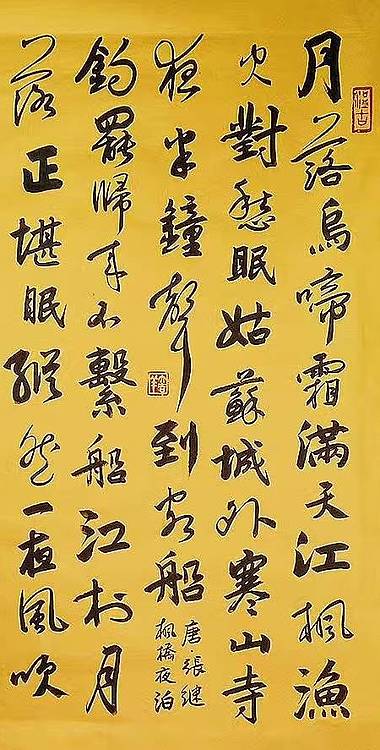 月落烏啼霜滿天江楓漁
火對愁眠姑蘇城外寒山寺
夜半鐘聲到客船
唐·張繼
楓橋夜泊
釣罷歸來不繫船江村月
落正堪眠縱然一夜風吹